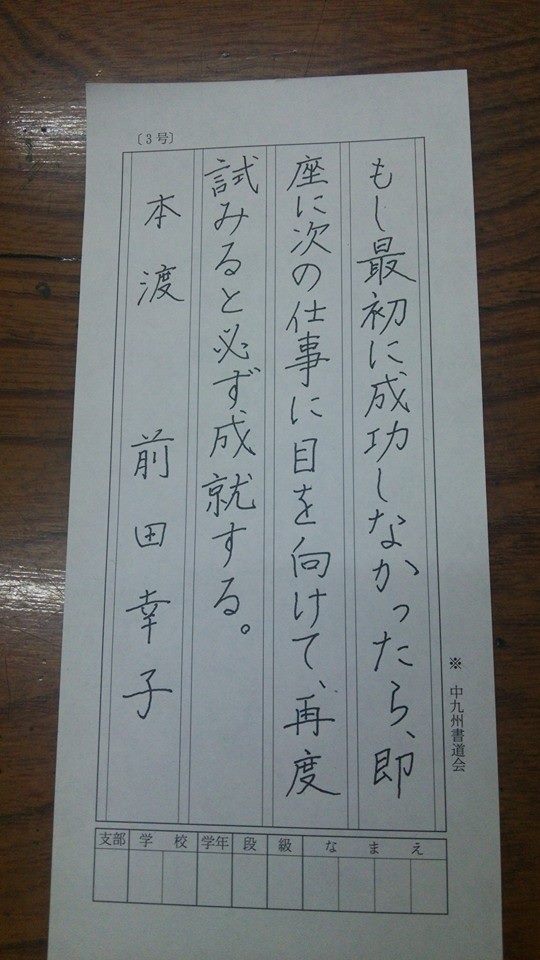 〔3号〕
もし最初に成功しなかったら、即
座に次の仕事に目を向けて、再度
試みると必ず成就する。
本渡 前田幸子
※ 中九州書道会
支部 学校 学年 段 級 なまえ